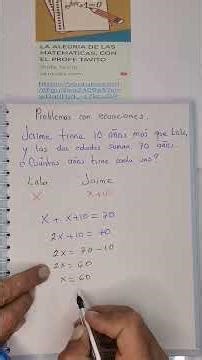 LA ALEGRIA DE LAS
MATEMATICAS, CON
EL PROFE TAVITO
Problemas con ecuaciones.
Jaime tiene 10 años más que Lola,
y las dos edades suman 70 años.
¿Cuántos años tiene cada uno?
Lola Jaime
x x+10
x + x+10 = 70
2x+10 = 70
2x = 70-10
2x = 60
x = 60